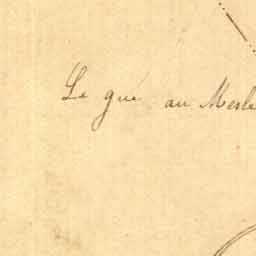 Le gué au Merle